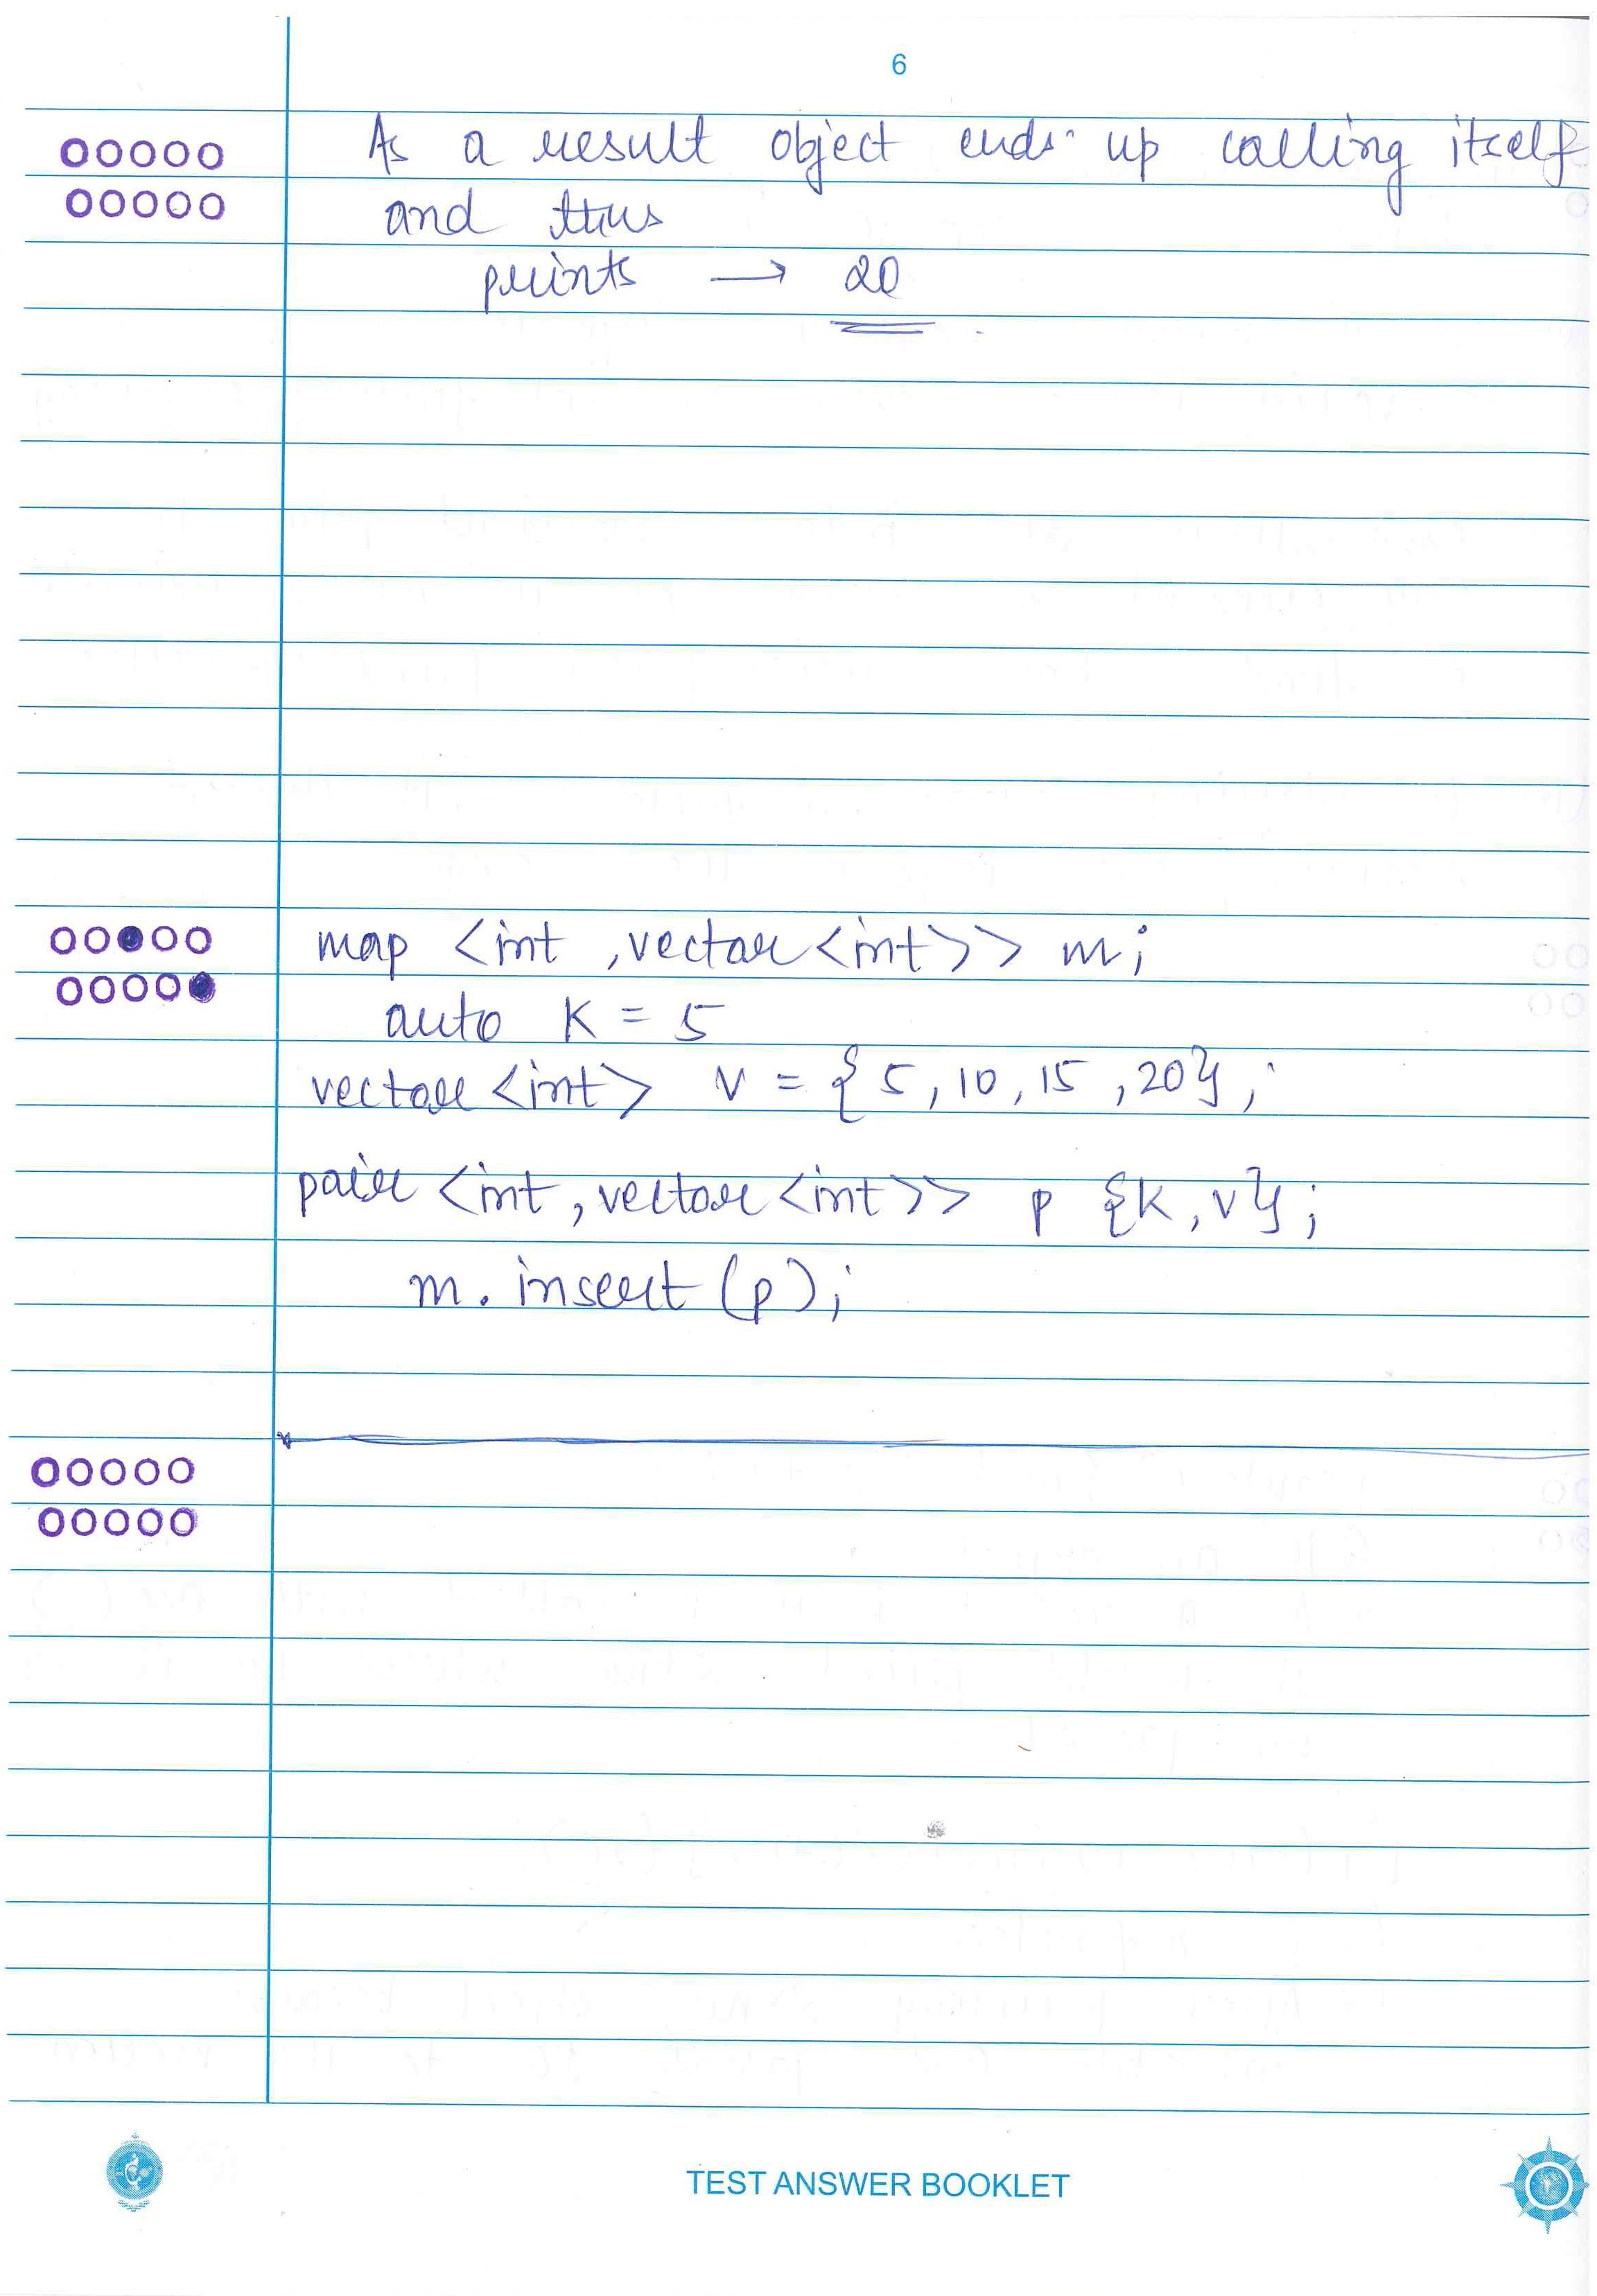 6
As a result object ends up calling itself
and thus
prints → 20
map <int ,vector<int>> m;
auto K = 5
vector<int> v = {5, 10, 15, 20};
pair <int, vector<int>> p {K, v};
m. insert (p);
TEST ANSWER BOOKLET